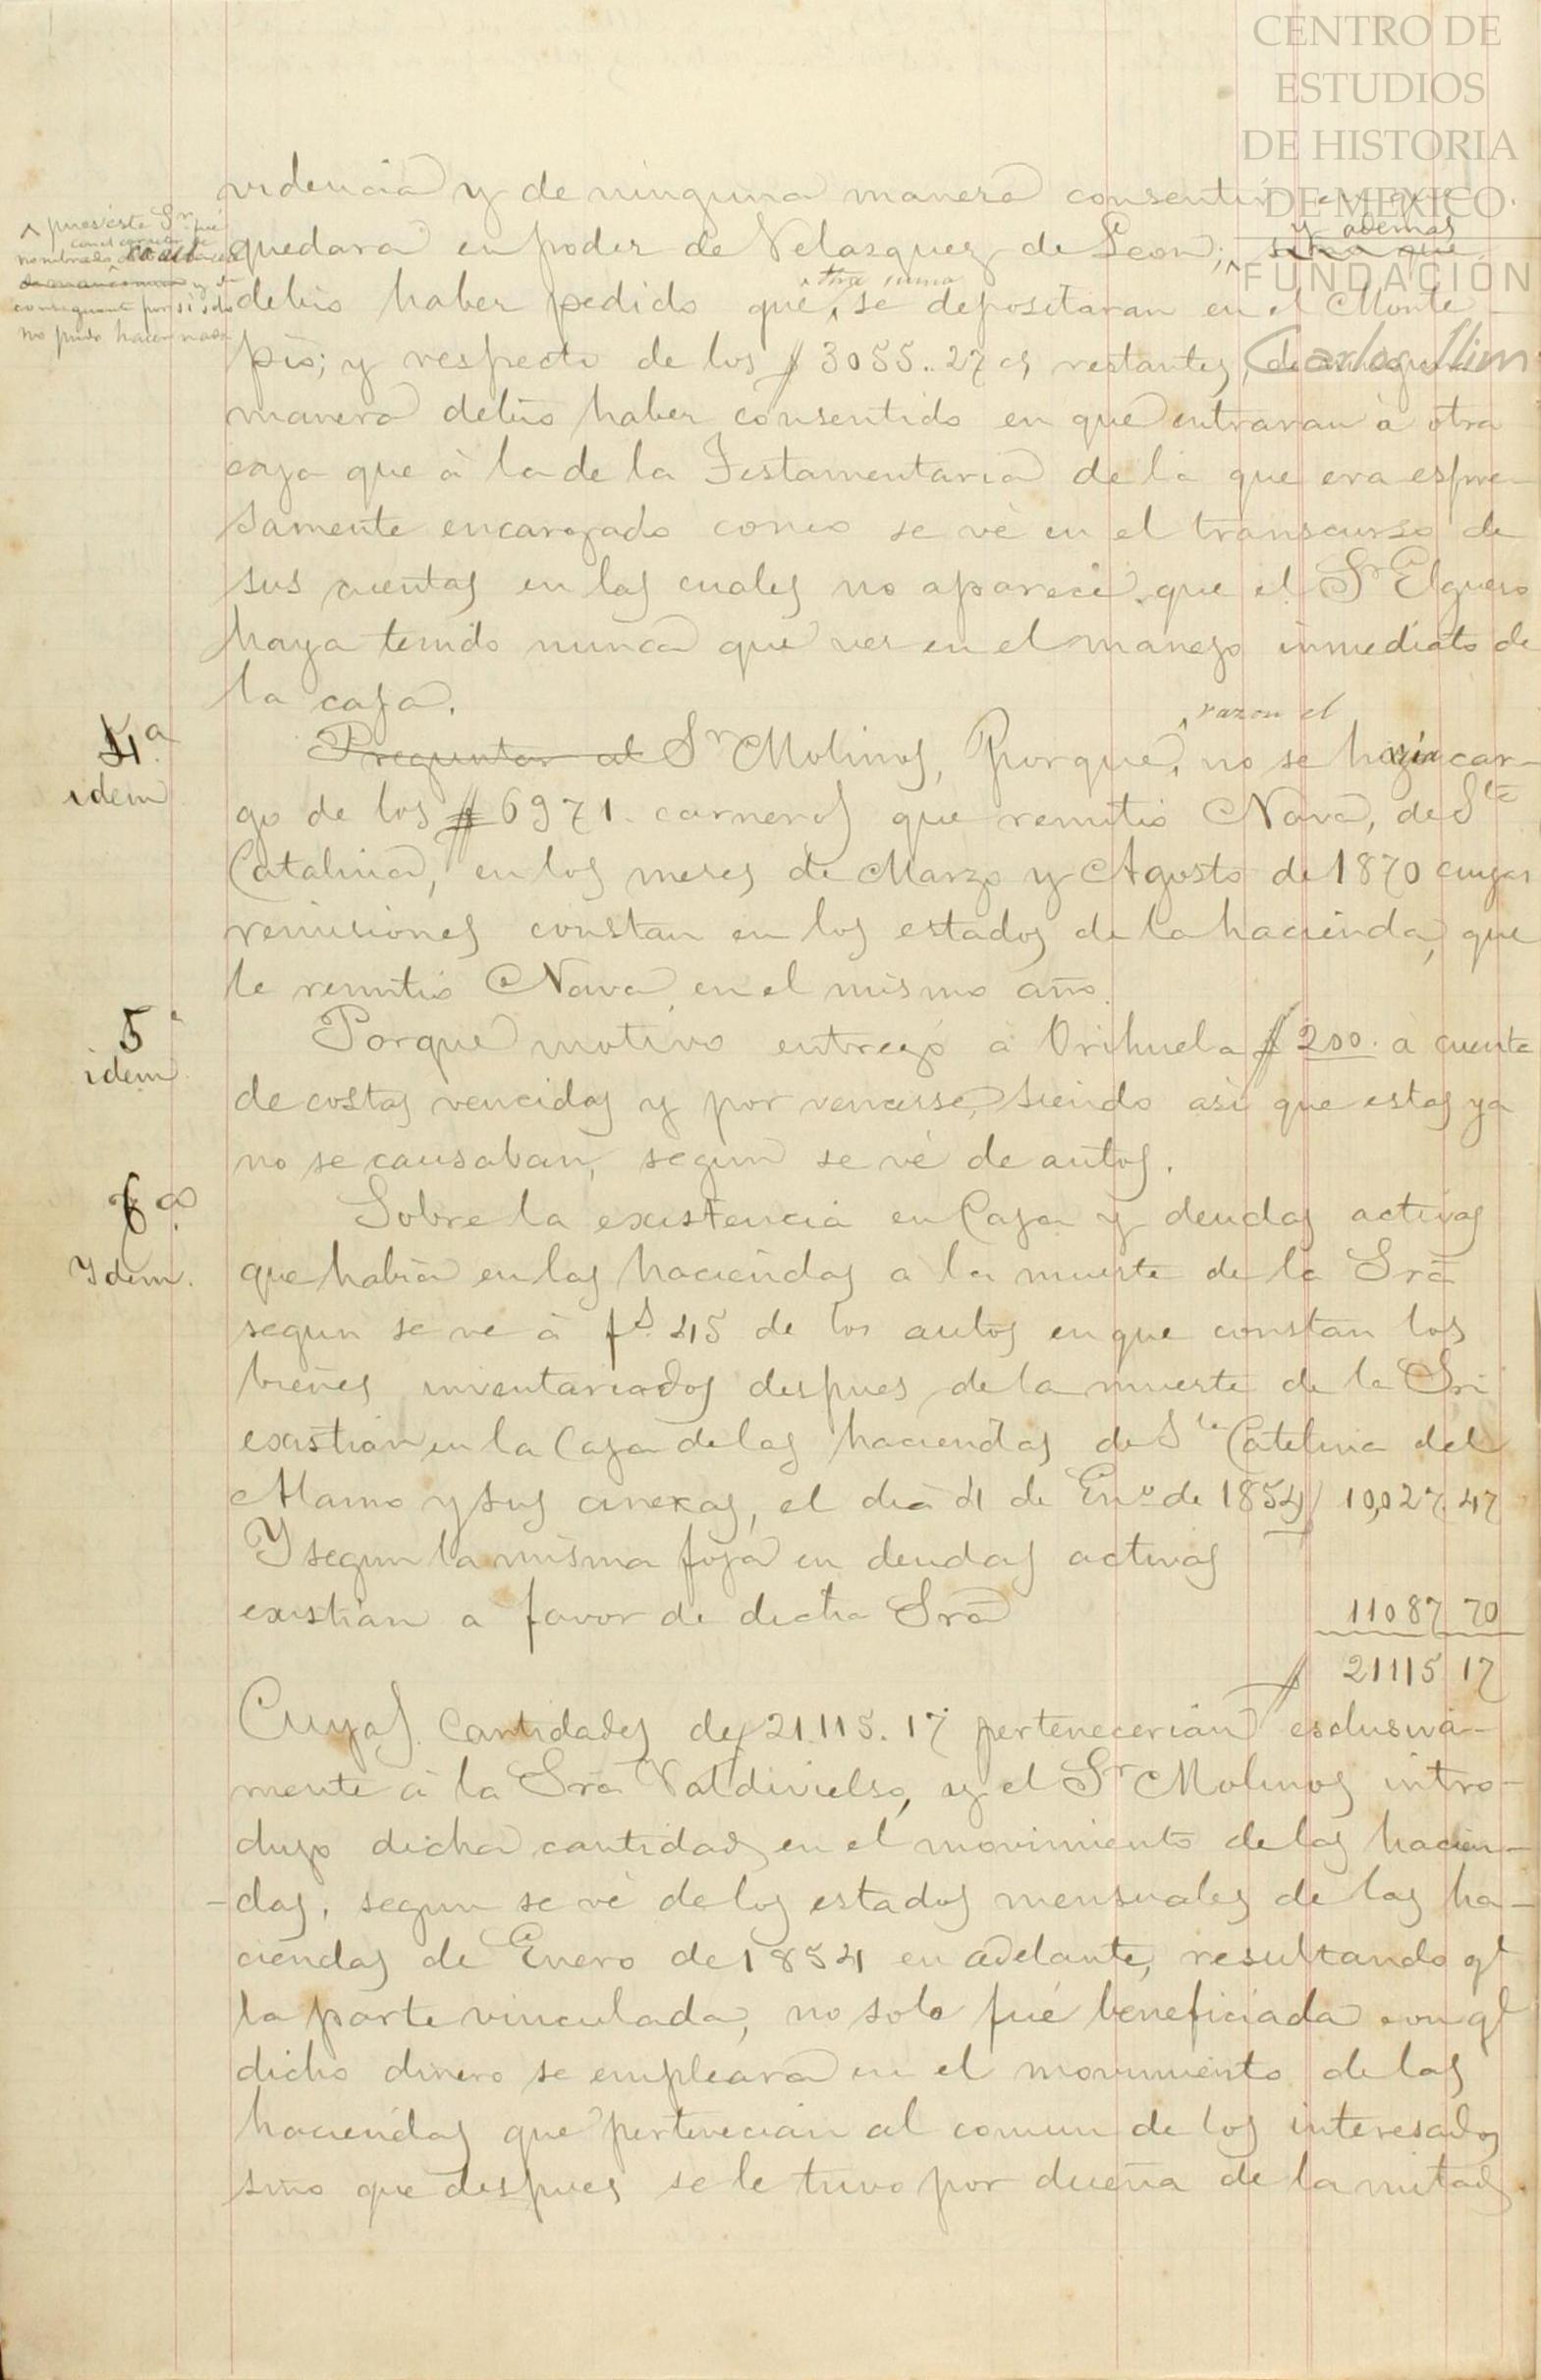 CENTRO DE
ESTUDIOS
DE HISTORIA
DE MEXICO
FUNDACIÓN
videncia y de ninguna manera consentir en que
pues éste Sr. fué
con el caracter de
nombrado co alb
de mancomun y de
consiguiente por sí solo
no pudo hacer nada
y ademas
quedara en poder de Velasquez de Leon; sino que
otra suma
debió haber pedido que se depositaran en el Monte
pio; y respecto de los $3055..27 cs restantes, de ninguna
Carlos Slim
manera debió haber consentido en que entraran à otra
caja que à la de la Testamentaria de la que era espre-
samente encargado como se vé en el transcurso de
sus cuentas en las cuales no aparece que el Sr Elguero
haya tenido nunca que ver en el manejo inmediato de
la caja.
4a.
idem
razon el
Preguntar al Sr Molinos, Porque, no se hacia car-
go de los $6971. carneros que remitió Nava, de Sta
Catalina, en los meses de Marzo y Agosto de 1870 cuyas
remisiones constan en los estados de la hacienda, que
le remitió Nava en el mismo año.
5a
idem
Porque motivo entregó à Orihuela $200. à cuenta
de costas vencidas y por vencerse, siendo asi que estas ya
no se causaban, segun se vé de autos.
6a.
Ydem.
Sobre la existencia en Caja y deudas activas
que habia en las haciendas a la muerte de la Sra
segun se ve à fs. 45 de los autos en que constan los
bienes inventariados despues de la muerte de la Sra
existian en la Caja de las haciendas de Sta Catalina del
Alamo y sus anexas, el dia 4 de Eno. de 1854 10,027 47
Y segun la misma foja en deudas activas
existian a favor de dicha Sra 11087 70
$ 21115 17
Cuyas Cantidades de $21.115.17 pertenecerian esclusiva-
mente à la Sra Valdivielso, y el Sr Molinos intro-
dujo dicha cantidad en el movimiento de las hacien-
-das, segun se vé de los estados mensuales de las ha-
ciendas de Enero de 1854 en adelante, resultando qe
la parte vinculada, no solo fué beneficiada con qe
dicho dinero se empleara en el movimiento de las
haciendas que pertenecian al comun de los interesados
sino que despues se le tuvo por dueña de la mitad